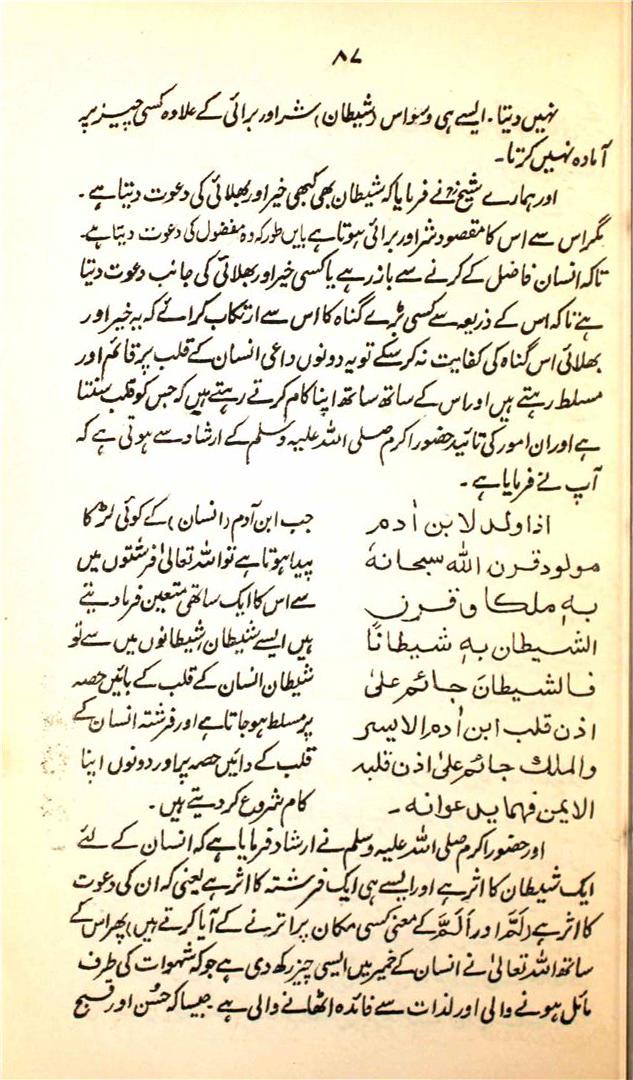 ۸۷
نہیں دیتا۔ ایسے ہی وسواس (شیطان) شر اور برائی کے علاوہ کسی چیز پر
آمادہ نہیں کرتا۔
اور ہمارے شیخؒ نے فرمایا کہ شیطان بھی کبھی خیر اور بھلائی کی دعوت دیتا ہے۔
مگر اس سے اس کا مقصود شر اور برائی ہوتا ہے بایں طور کہ وہ مفضول کی دعوت دیتا ہے۔
تاکہ انسان فاضل کے کرنے سے باز رہے یا کسی خیر اور بھلائی کی جانب دعوت دیتا
ہے تاکہ اس کے ذریعہ سے کسی بڑے گناہ کا اس سے ارتکاب کرائے کہ یہ خیر اور
بھلائی اس گناہ کی کفایت نہ کر سکے تو یہ دونوں داعی انسان کے قلب پر قائم اور
مسلط رہتے ہیں اور اس کے ساتھ ساتھ اپنا کام کرتے رہتے ہیں کہ جس کو قلب سنتا
ہے اور ان امور کی تائید حضور اکرم صلی اللہ علیہ وسلم کے ارشاد سے ہوتی ہے کہ
آپ نے فرمایا ہے۔
اذا ولد لابن اٰدم
مولود قرن اللّٰہ سبحانہٗ
بہٖ ملکا و قرن
الشیطان بہٖ شیطانًا
فالشیطانَ جاثم علیٰ
اذن قلب ابن اٰدم الایسر
والملك جاثم علیٰ اذن قلبہ
الایمن فھما یدعوانہ۔
جب ابن آدم (انسان) کے کوئی لڑکا
پیدا ہوتا ہے تو اللہ تعالیٰ فرشتوں میں
سے اس کا ایک ساتھی متعین فرما دیتے
ہیں ایسے شیطان (شیطانوں میں سے تو
شیطان انسان کے قلب کے بائیں حصہ
پر مسلط ہو جاتا ہے اور فرشتہ انسان کے
قلب کے دائیں حصہ پر اور دونوں اپنا
کام شروع کر دیتے ہیں۔
اور حضور اکرم صلی اللہ علیہ وسلم نے ارشاد فرمایا ہے کہ انسان کے لئے
ایک شیطان کا اثر ہے اور ایسے ہی ایک فرشتہ کا اثر ہے یعنی کہ ان کی دعوت
کا اثر ہے (لَمَّ اور اَلَمَّ کے معنی کسی مکان پر اترنے کے آیا کرتے ہیں) پھر اس کے
ساتھ اللہ تعالیٰ نے انسان کے خمیر میں ایسی چیز رکھ دی ہے جو کہ شہوات کی طرف
مائل ہونے والی اور لذات سے فائدہ اٹھانے والی ہے۔ جیسا کہ حسُن اور قبیح